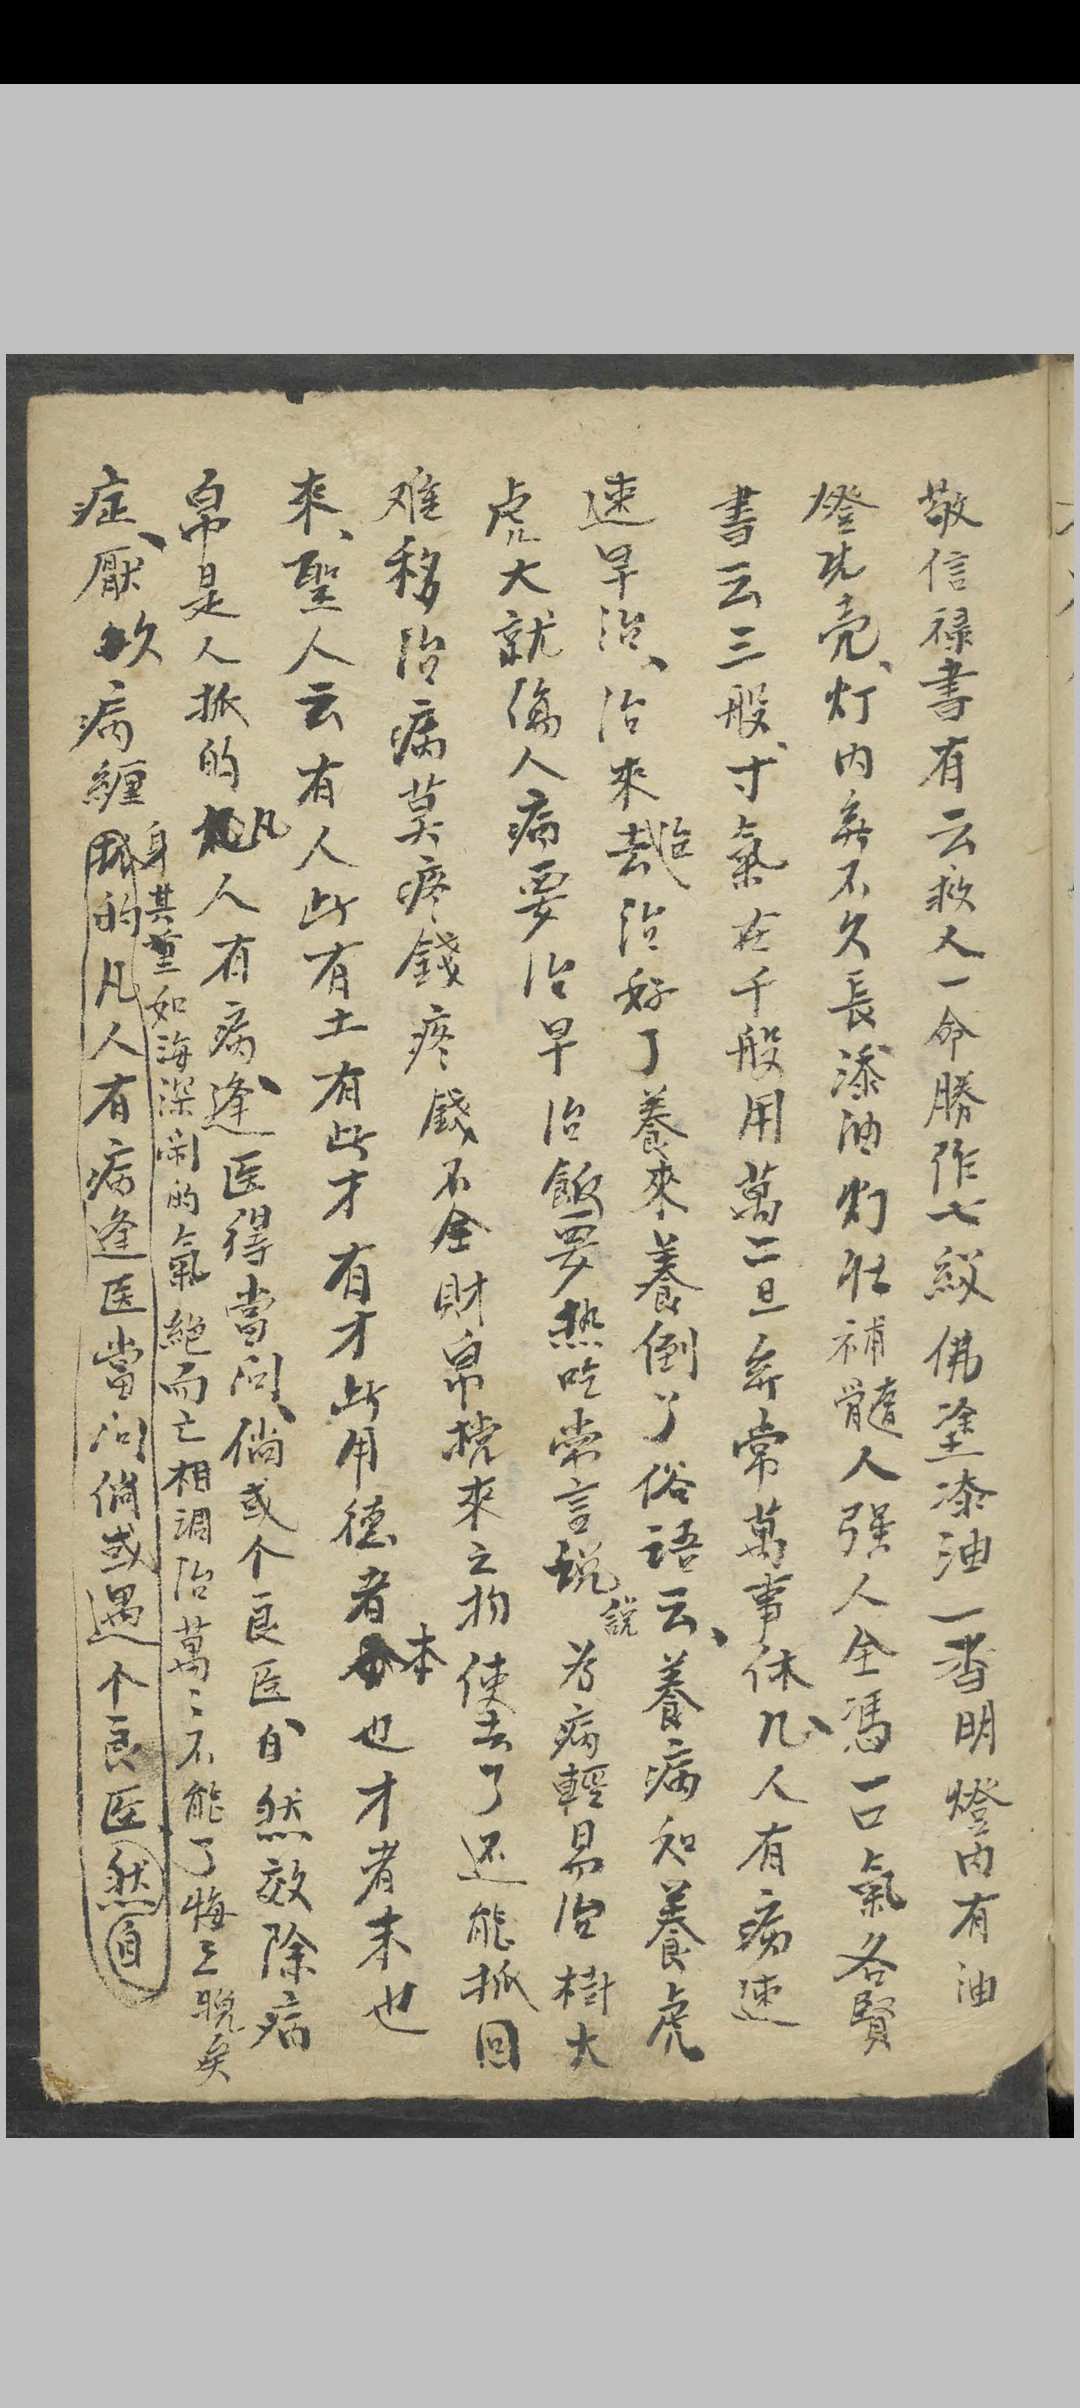 敬信禄書有云救人一命勝作七級佛塗添油一盞明燈内有油
燈光亮灯内無不久長添油灯壮補髓人强人全馮一口氣名賢
書云三般寸氣在千般用萬二旦無常萬事休凡人有病速
速早治治來去治治好了養來養倒了俗語云養病如養虎
虎大就傷人病要治早治飯要热吃常言說說为病輕易治樹大
难移治病莫疼錢疼錢不全財帛挠來之物使去了还能抓回
來聖人云有人此有土有此才有才此用德者本也才者末也
帛是人抓的凡人有病逢医得當问倘或个良医自然效除病
症厭坎病纏身其重如海深闹的氣絶而亡相調治萬〻不能了悔之晚矣
的凡人有病逢医當问倘或遇个良医然自